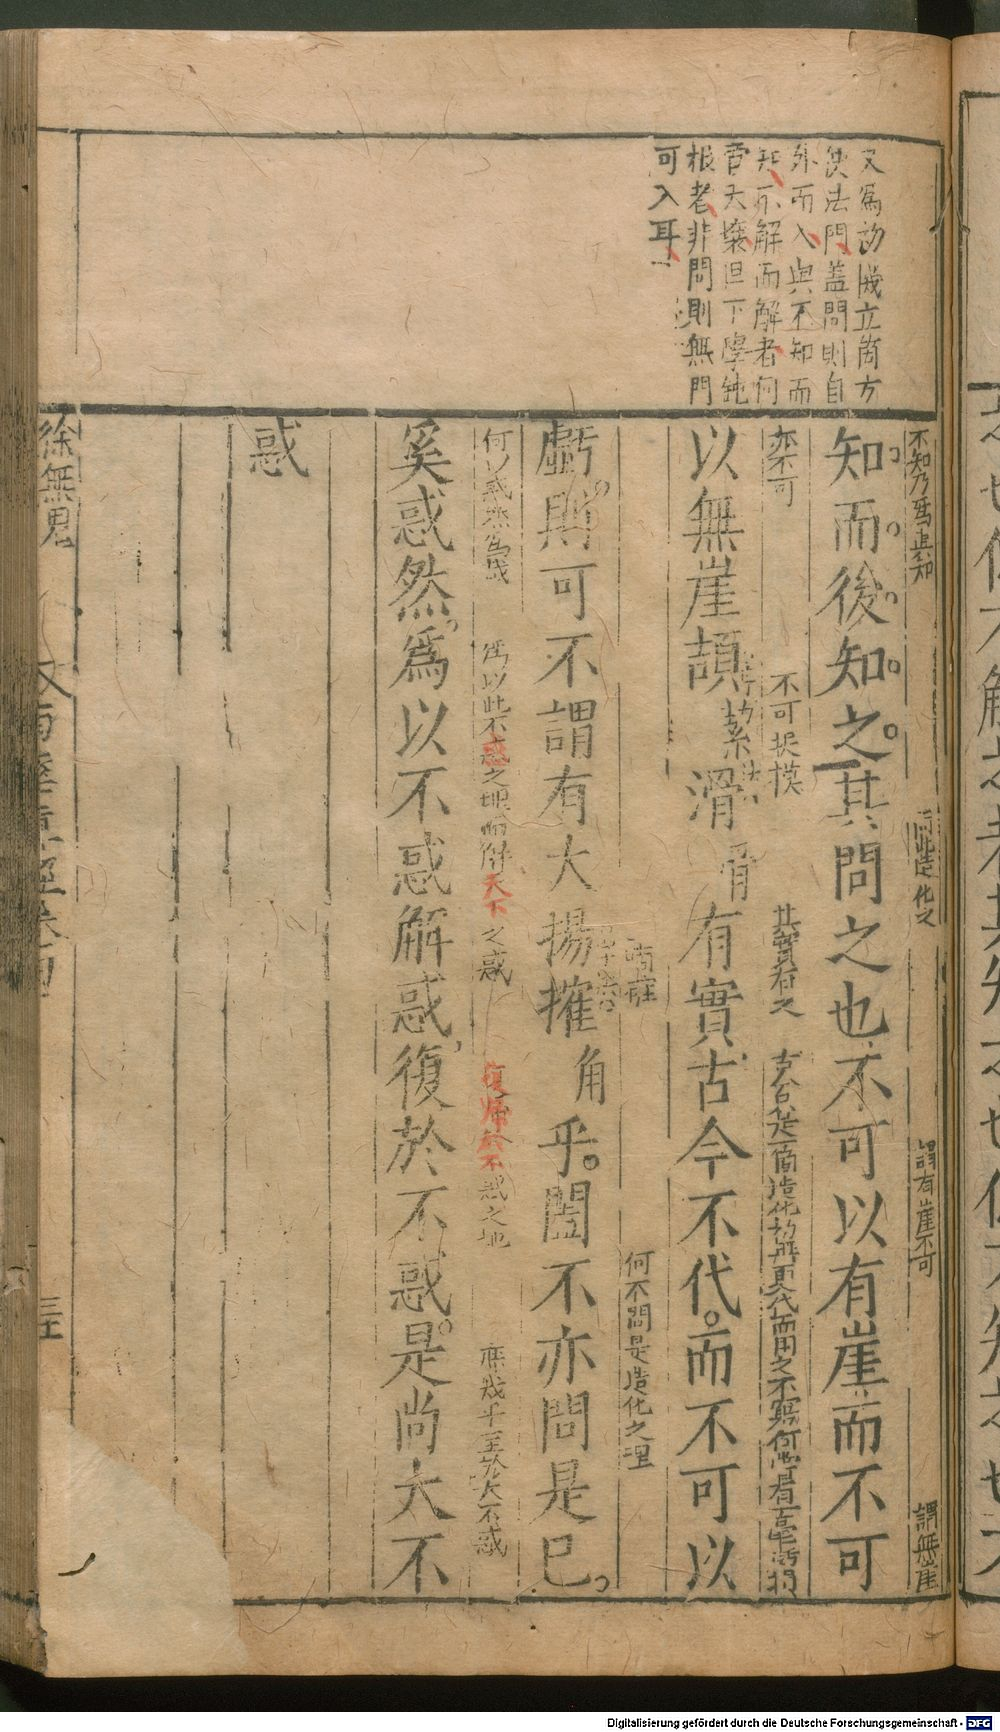 又爲初機立箇方
便法門蓋問則自
外而入與不知而
知不解而解者何
啻天壤但下學鈍
根老非問則無門
可入耳
不知乃爲真知
造化之
謂有崖不可
謂無崖
知而後知之其問之也不可以有崖而不可
亦不可
不可捉模
其實有之
古今是一箇造化初無更代而用之不窮何
以無崖頡滑有實古今不代而不可以
音註
何不問是造化之理
虧則可不謂有大揚搉角乎闔不亦問是已
何以惑然爲哉
爲以此不惑之理而解天下之惑
復歸於不惑之地
庶幾乎至於大不惑
奚惑然爲以不惑解惑復於不惑是尚大不
惑
徐無鬼
南華真經卷四
三五
Digitalisierung gefördert durch die Deutsche Forschungsgemeinschaft - DFG